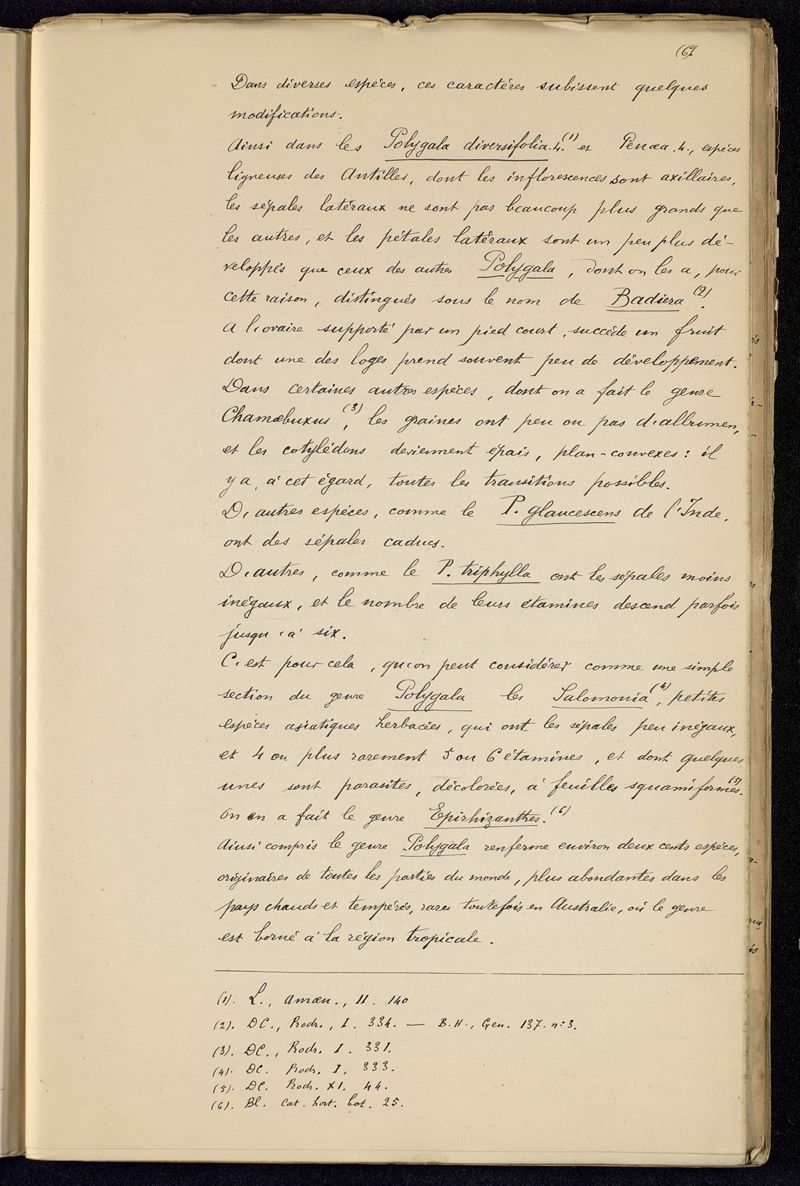 (6)
Dans diverses espèces, ces caractères subissent quelques
modifications.
Ainsi dans les Polygala diversifolia. L.(1) et Penæa. L., espèces
ligneuses des Antilles, dont les inflorescences sont axillaires,
les sépales latéraux ne sont pas beaucoup plus grands que
les autres, et les pétales latéraux sont un peu plus dé-
veloppés que ceux des autres Polygala, dont on les a, pour
cette raison, distingués sous le nom de Badiera (2).
A l'ovaire supporté par un pied court, succède un fruit
dont une des loges prend souvent peu de développement.
Dans certaines autres espèces, dont on a fait le genre
Chamæbuxus (3), les graines ont peu ou pas d'albumen,
et les cotylédons deviennent épais, plan-convexes: il
y a, à cet égard, toutes les transitions possibles.
D'autres espèces, comme le P. glaucescens de l'Inde,
ont des sépales caducs.
D'autres, comme le P. triphylla ont les sépales moins
inégaux, et le nombre de leurs étamines descend parfois
jusqu'à six.
C'est pour cela, qu'on peut considérer comme une simple
section du genre Polygala les Salomonia (4), petites
espèces asiatiques herbacées, qui ont les sépales peu inégaux,
et 4 ou plus rarement 5 ou 6 étamines, et dont quelques
unes sont parasites, décolorées, à feuilles squamiformes (5).
On en a fait le genre Epirhizanthes. (6)
Ainsi compris le genre Polygala renferme environ deux cents espèces,
originaires de toutes les parties du monde, plus abondantes dans les
pays chauds et tempérés, rares toutefois en Australie, où le genre
est borné à la région tropicale.
(1). L., Amæn., II. 140
(2). DC., Prodr., I. 334. — B.H., Gen. 137. n: 3.
(3). DC., Prodr. I. 331.
(4). DC. Prodr. I. 333.
(5). DC. Prodr. XI. 44.
(6). Bl. Cat. hort. bot. 25.